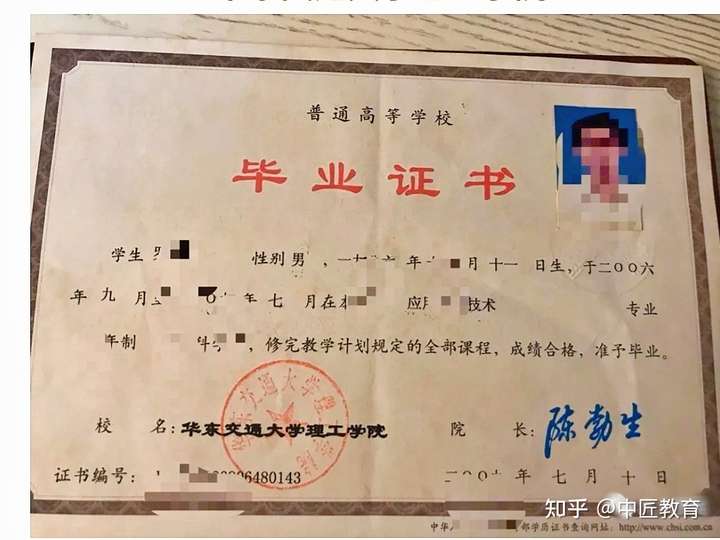 普通高等学校
毕业证书
学生 性别 男, 年 月 十一 日生,于二〇〇六
年 九 月 年 七 月在 应 技术 专业
年制 ,修完教学计划规定的全部课程,成绩合格,准予毕业。
校 名:华东交通大学理工学院 院 长:陈勃生
华东交通大学理工学院
证书编号: 06480143 二〇〇 年 七 月 十 日
知乎 @中匠教育
学历证书查询网址:http://www.chsi.com.cn